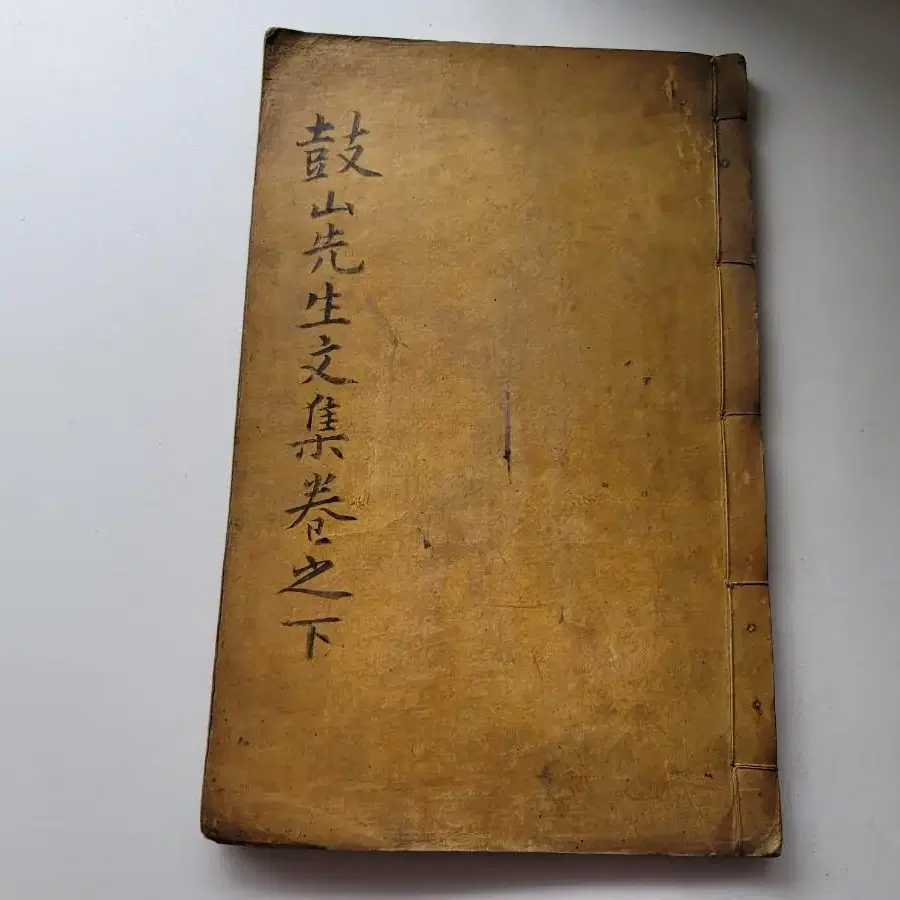 鼓山先生文集卷之下